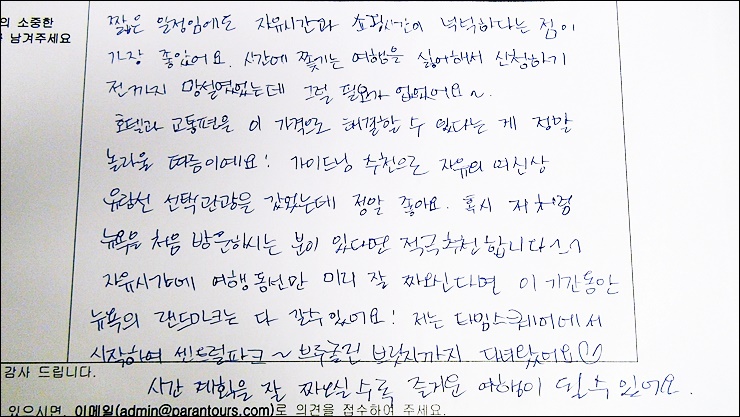 의 소중한
남겨주세요
짧은 일정임에도 자유시간과 쇼핑시간이 넉넉하다는 점이
가장 좋았어요. 시간에 쫓기는 여행을 싫어해서 신청하기
전까지 망설였었는데 그럴 필요가 없었어요~.
호텔과 교통편을 이 가격으로 해결할 수 있다는 게 정말
놀라울 따름이에요! 가이드님 추천으로 자유의 여신상
유람선 선택관광을 갔었는데 정말 좋아요. 혹시 저처럼
뉴욕을 처음 방문하시는 분이 있다면 적극추천합니다^^
자유시간에 여행 동선만 미리 잘 짜오신다면 이 기간동안
뉴욕의 랜드마크는 다 갈수있어요! 저는 타임스퀘어에서
시작하여 센트럴파크~브루클린 브릿지까지 다녀왔어요♡
감사 드립니다.
시간 계획을 잘 짜오실수록 즐거운 여행이 될 수 있어요.
있으시면, 이메일(admin@parantours.com)로 의견을 접수하여 주세요.